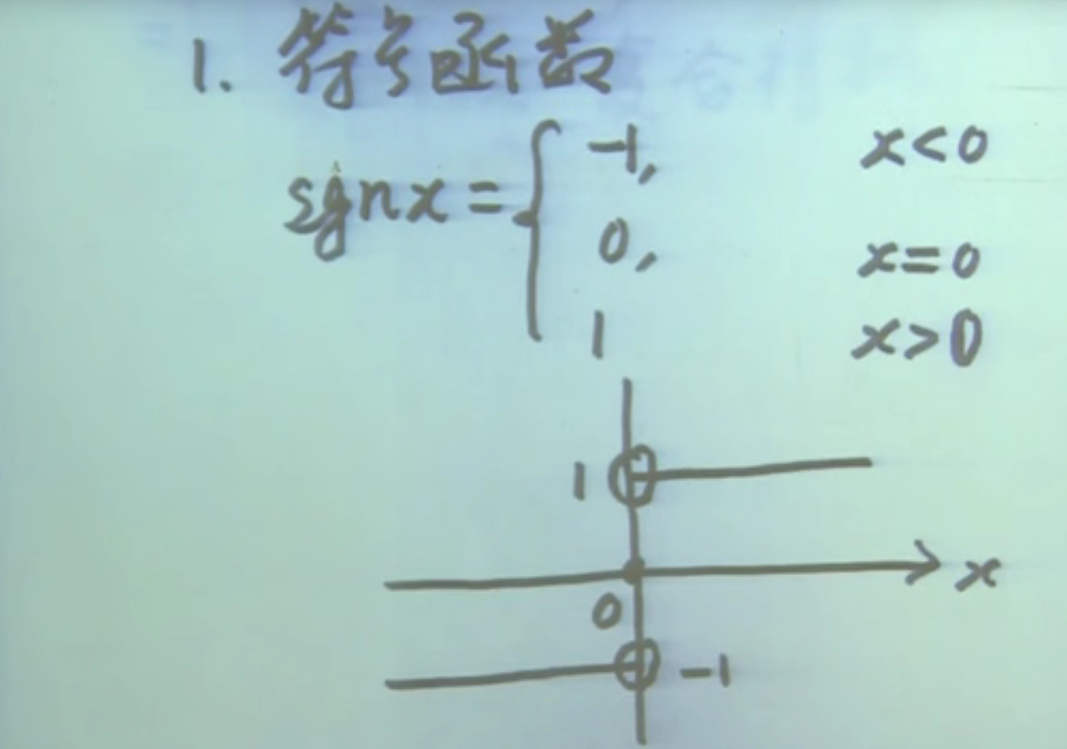 1. 符号函数
sgn x = { -1, x<0
0, x=0
1 x>0
1
x
0
-1